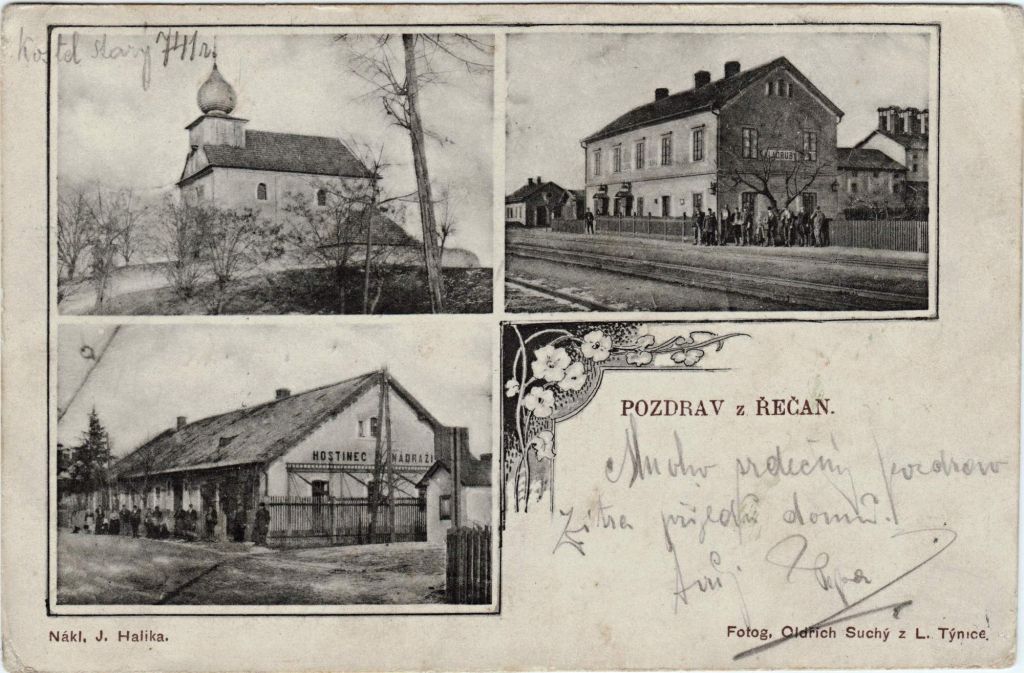 Kostel starý 741 r.
HOSTINEC NÁDRAŽÍ
POZDRAV z ŘEČAN.
Mnoho srdečný pozdrav
Zítra přijedu domů.
Nákl, J. Halika.
Fotog, Oldřich Suchý z L. Týnice.